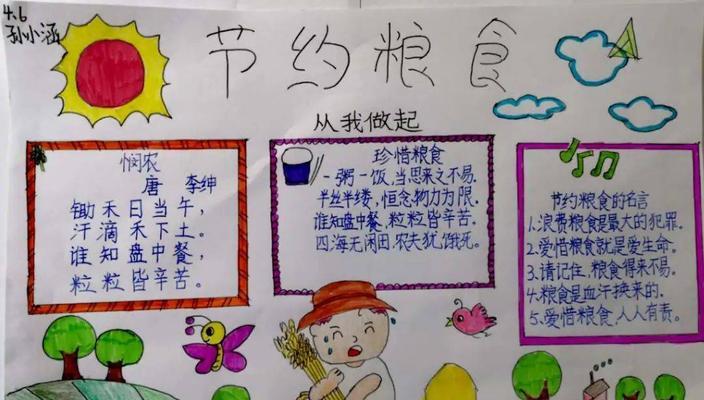 4.6
孙小涵
节约粮食
从我做起
悯农
唐 李绅
锄禾日当午，
汗滴禾下土。
谁知盘中餐，
粒粒皆辛苦。
珍惜粮食
一粥一饭，当思来之不易，
半丝半缕，恒念物力为限。
谁知盘中餐，粒粒皆辛苦。
四海无闲田，农夫犹饿死。
节约粮食的名言
1.浪费粮食是最大的犯罪。
2.爱惜粮食就是爱生命。
3.请记住，粮食得来不易。
4.粮食是血汗换来的。
5.爱惜粮食，人人有责。